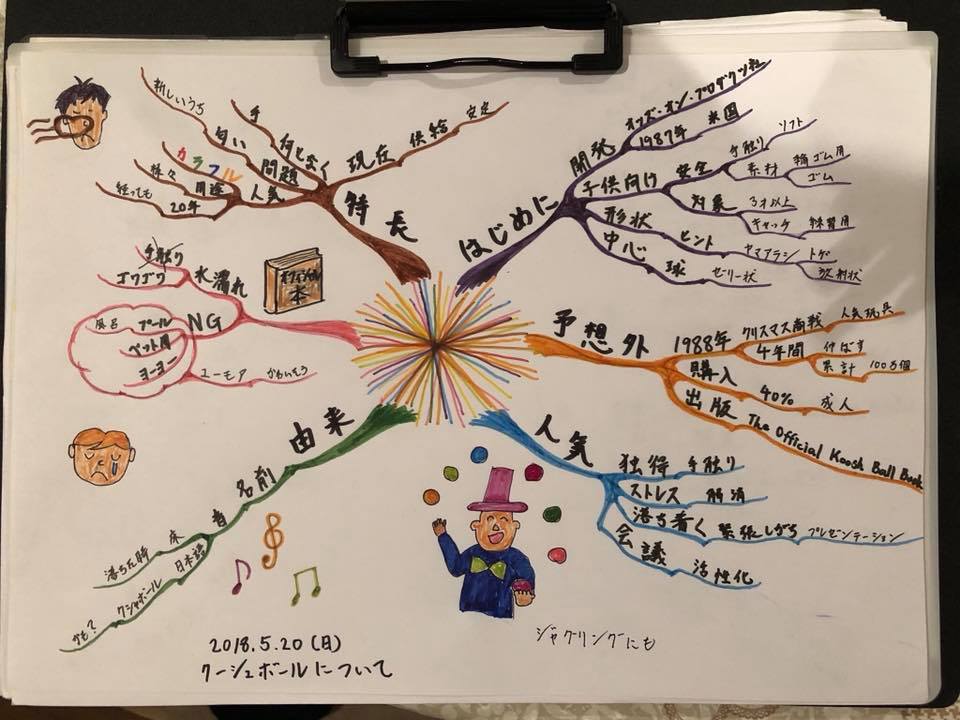 はじめに
開発
オッズ・オン・プロダクツ社
1987年 米国
子供向け
安全
手触り ソフト
素材
輪ゴム用
ゴム
対象
3才以上
キャッチ 練習用
形状 ヒント ヤマアラシ トゲ
放射状
中心 球 ゼリー状
予想外
1988年
クリスマス商戦 人気玩具
4年間
伸ばす
累計 100万個
購入 40% 成人
出版 The Official Koosh Ball Book
人気
独得 手触り
ストレス 解消
落ち着く 緊張しがち プレゼンテーション
会議 活性化
ジャグリングにも
由来
名前
音
床 落ちた時
日本語 クシャボール かも?
水濡れ
手触り
ゴワゴワ
NG
プール 風呂
ペット用
ヨーヨー
ユーモア かわいそう
オフィシャル
本
特長
現在 供給 安定
何となく 手
問題 匂い 新しいうち
人気
カラフル
用途 様々
20年 経っても
2018.5.20(日)
クーシュボールについて